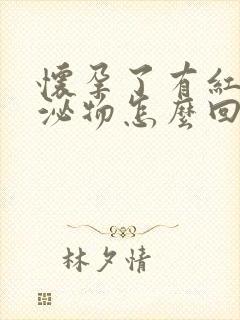 懷孕了有紅
泌物怎麼回
林夕情